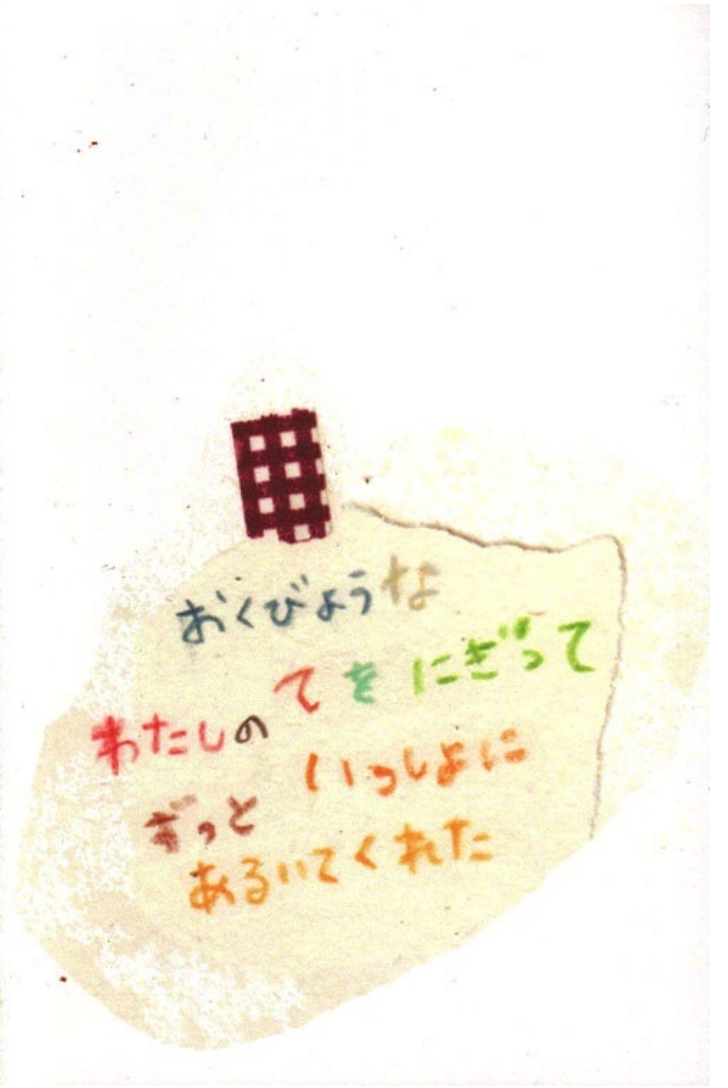 おくびような
わたしの てを にぎって
ずっと いっしょに
あるいてくれた